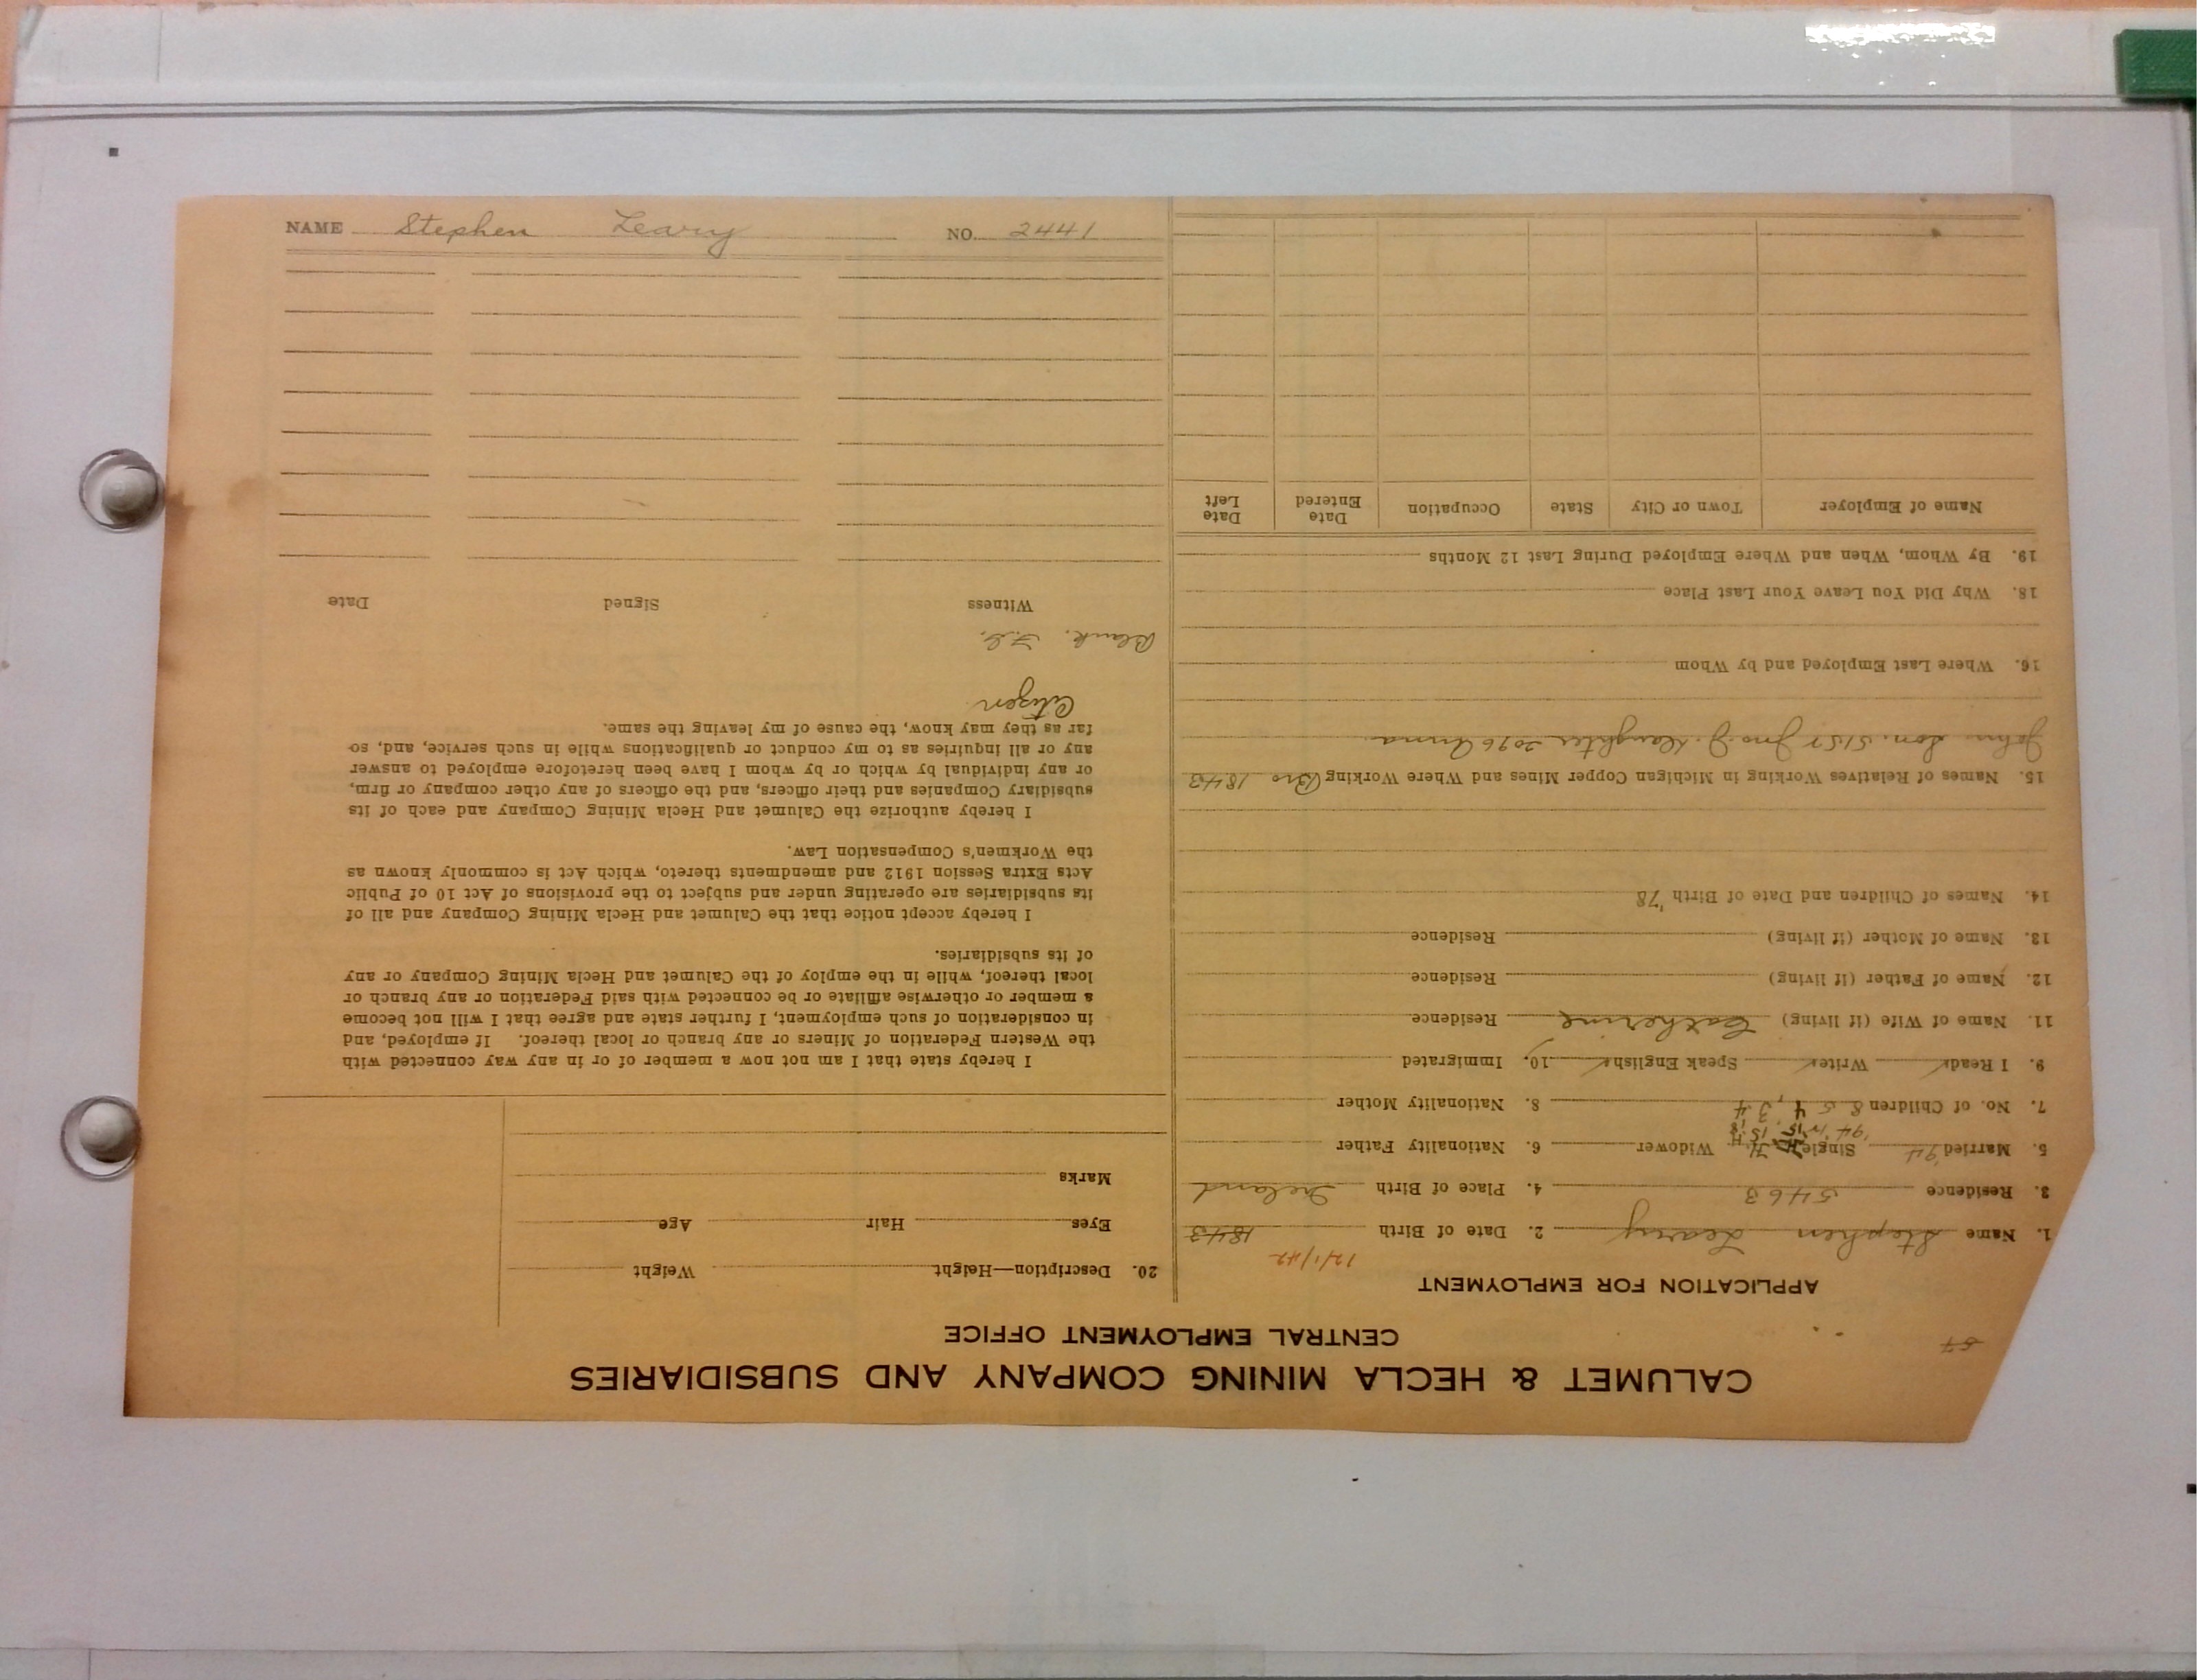 CALUMET & HECLA MINING COMPANY AND SUBSIDIARIES
CENTRAL EMPLOYMENT OFFICE
57
APPLICATION FOR EMPLOYMENT
12/1/42
1. Name Stephen Leary 2. Date of Birth 1843
3. Residence 5463 4. Place of Birth Ireland
5. Married '94 Single Widower 6. Nationality Father
7. No. of Children 8 5 4, 3 4 8. Nationality Mother
9. I Read Write Speak English 10. Immigrated
11. Name of Wife (if living) Catherine Residence
12. Name of Father (if living) Residence
13. Name of Mother (if living) Residence
14. Names of Children and Date of Birth '78
15. Names of Relatives Working in Michigan Copper Mines and Where Working Bro 1843
John Son. 5157 Jno J. Daughter 2096 Anna
16. Where Last Employed and by Whom
18. Why Did You Leave Your Last Place
19. By Whom, When and Where Employed During Last 12 Months
Name of Employer Town or City State Occupation Date Entered Date Left
20. Description—Height Weight
Eyes Hair Age
Marks
I hereby state that I am not now a member of or in any way connected with
the Western Federation of Miners or any branch or local thereof. If employed, and
in consideration of such employment, I further state and agree that I will not become
a member or otherwise affiliate or be connected with said Federation or any branch or
local thereof, while in the employ of the Calumet and Hecla Mining Company or any
of its subsidiaries.
I hereby accept notice that the Calumet and Hecla Mining Company and all of
its subsidiaries are operating under and subject to the provisions of Act 10 of Public
Acts Extra Session 1912 and amendments thereto, which Act is commonly known as
the Workmen's Compensation Law.
I hereby authorize the Calumet and Hecla Mining Company and each of its
subsidiary Companies and their officers, and the officers of any other company or firm,
or any individual by which or by whom I have been heretofore employed to answer
any or all inquiries as to my conduct or qualifications while in such service, and, so
far as they may know, the cause of my leaving the same.
Citizen
Blank.
Witness Signed Date
NAME Stephen Leary NO. 2441